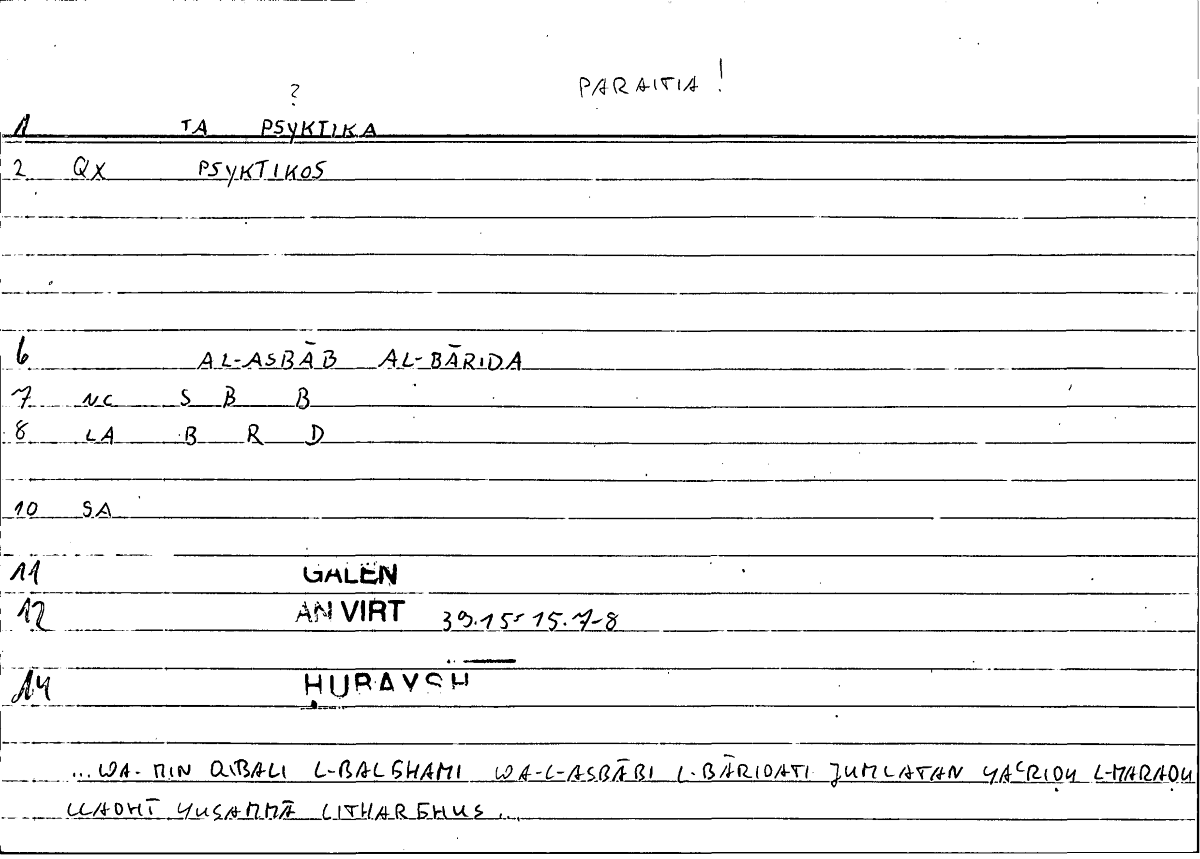 PARAITIA !
?
1 TA PSYKTIKA
2 QX PSYKTIKOS
6 AL-ASBĀB AL-BĀRIDA
7 NC S B B
8 LA B R D
10 SA
11 GALEN
12 AN VIRT 39.15 = 15.7-8
14 ḤURAYSH
...WA-MIN QIBALI L-BALGHAMI WA-L-ASBĀBI L-BĀRIDATI JUMLATAN YAʿRIḌU L-MARAḌU
LLADHĪ YUSAMMĀ LITHARGHUS...